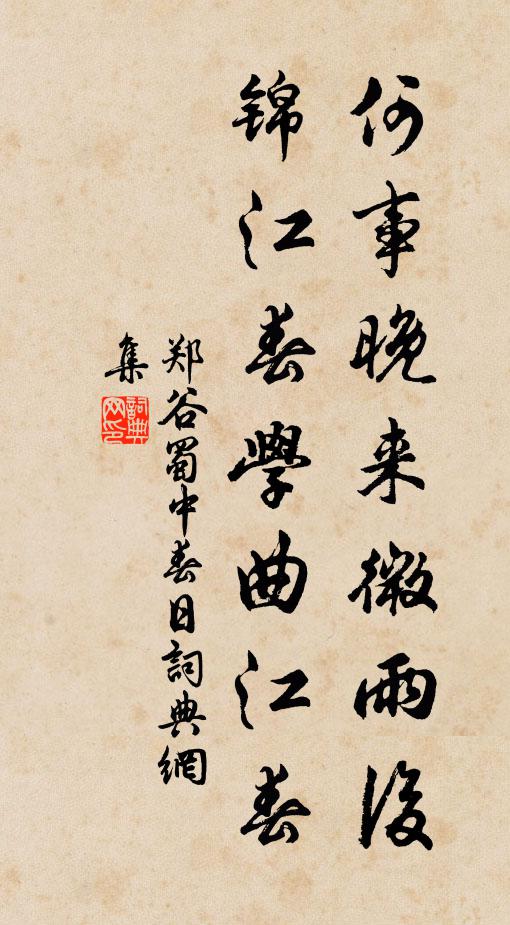 何事晚来微雨後
锦江春學曲江春
郑谷蜀中春日詞典網
集
詞典网印